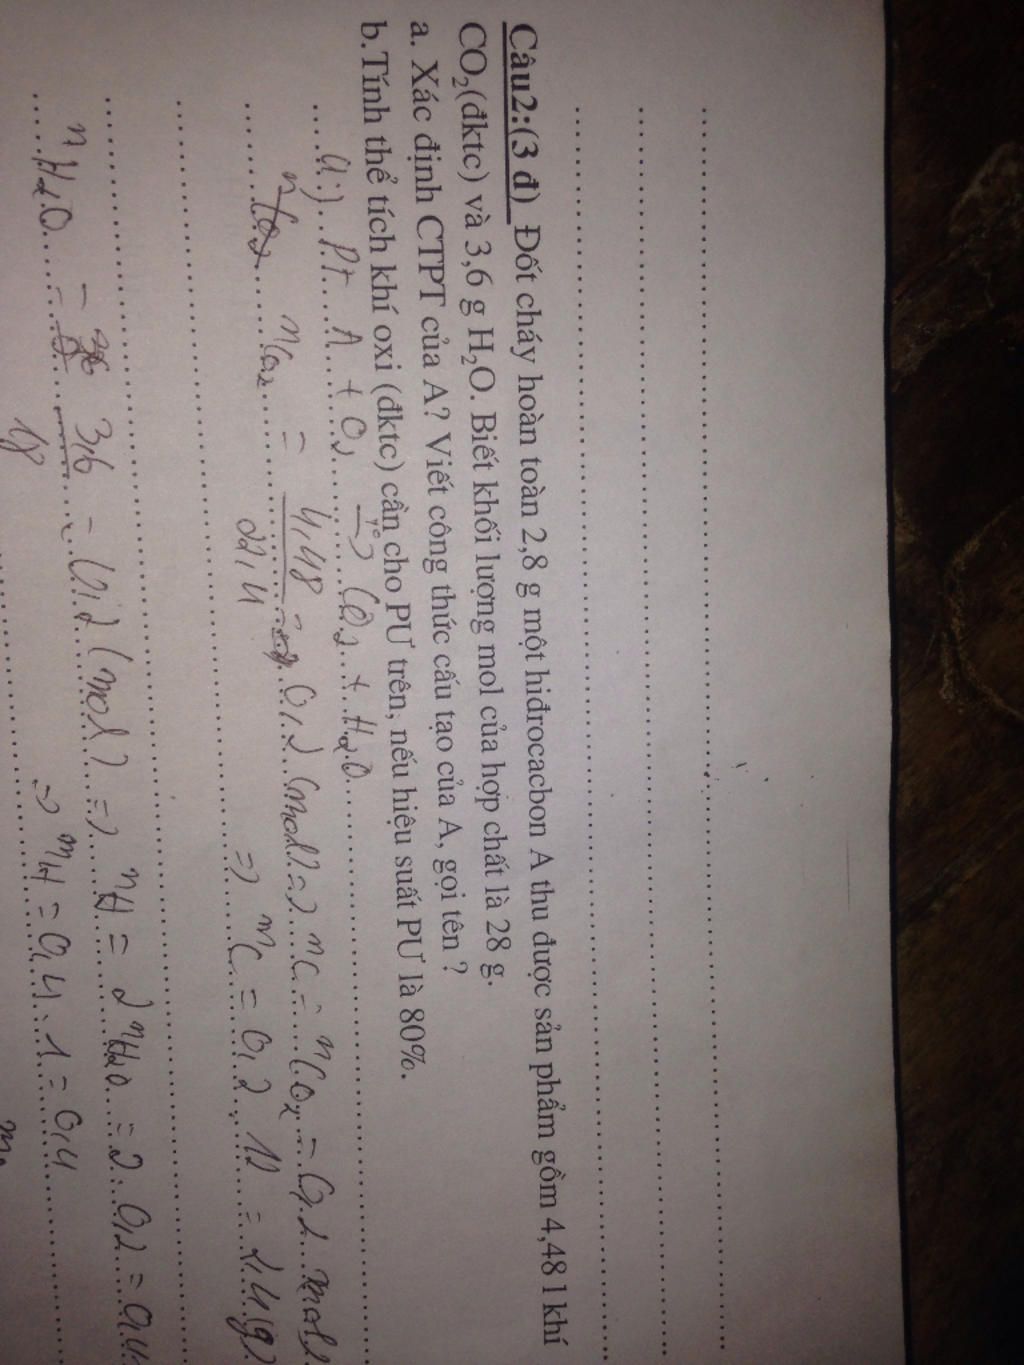 Câu2:(3 đ) Đốt cháy hoàn toàn 2,8 g một hiđrocacbon A thu được sản phẩm gồm 4,48 l khí
CO₂(đktc) và 3,6 g H₂O. Biết khối lượng mol của hợp chất là 28 g.
a. Xác định CTPT của A? Viết công thức cấu tạo của A, gọi tên ?
b.Tính thể tích khí oxi (đktc) cần cho PƯ trên, nếu hiệu suất PƯ là 80%.
a.) Pt A + O₂ →(t°) CO₂ + H₂O
nCO₂ = 4,48 / 22,4 = 0,2 (mol) => nC = nCO₂ = 0,2 mol
=> mC = 0,2 . 12 = 2,4 (g)
nH₂O = 3,6 / 18 = 0,2 (mol) => nH = 2nH₂O = 2 . 0,2 = 0,4
=> mH = 0,4 . 1 = 0,4